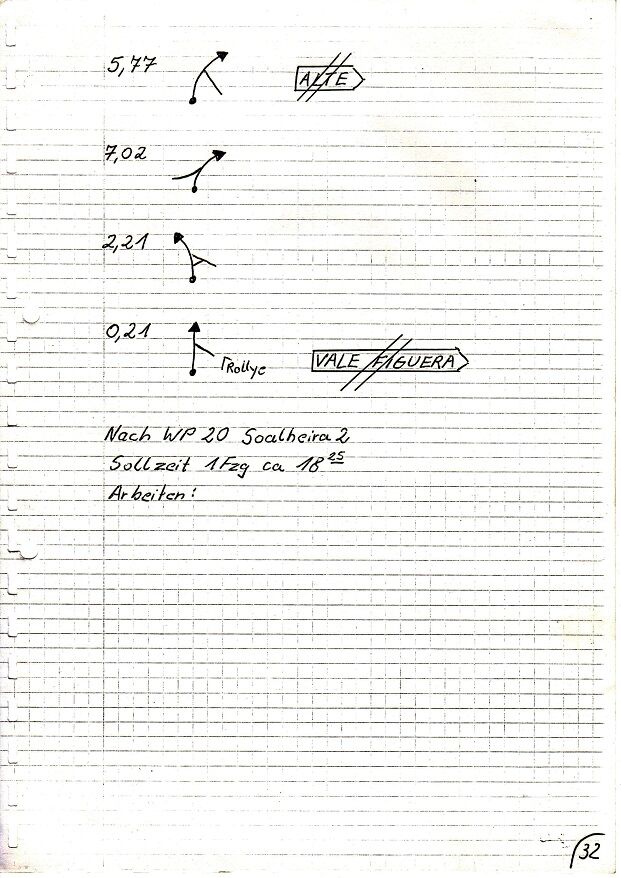 5,77 ALTE
7,02
2,21
0,21 Rallye VALE FIGUERA
Nach WP 20 Soalheira 2
Sollzeit 1 Fzg ca 18 25
Arbeiten:
32